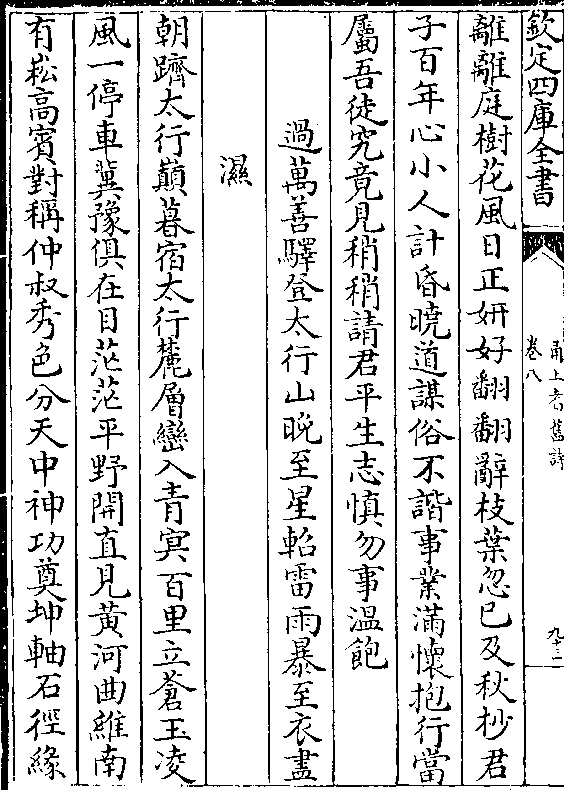 欽定四庫全書
甬上耆舊詩
卷八
九十三
離離庭樹花風日正妍好翻翻辭枝葉忽已及秋杪君
子百年心小人計昏曉道謀俗不諧事業滿懷抱行當
屬吾徒究竟見稍稍請君平生志慎勿事溫飽
過萬善驛登太行山晚至星軺雷雨暴至衣盡
濕
朝躋太行巔暮宿太行麓層巒入青冥百里立蒼玉凌
風一停車冀豫俱在目茫茫平野開直見黃河曲維南
有崧高賓對稱仲叔秀色分天中神功奠坤軸石徑緣